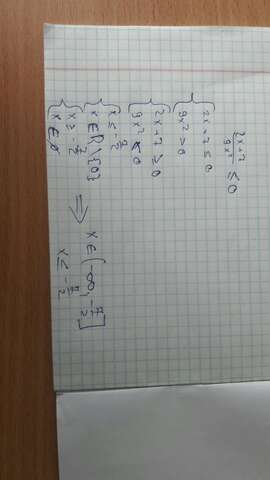 (2x+7)/(9x²) ≤ 0
{ 2x+7 ≤ 0
9x² > 0
{ 2x+7 ≥ 0
9x² < 0
{ x ≤ -7/2
x ∈ R \ {0}
{ x ≥ -7/2
x ∈ ∅
⇒ x ∈ (-∞, -7/2]
x ≤ -7/2